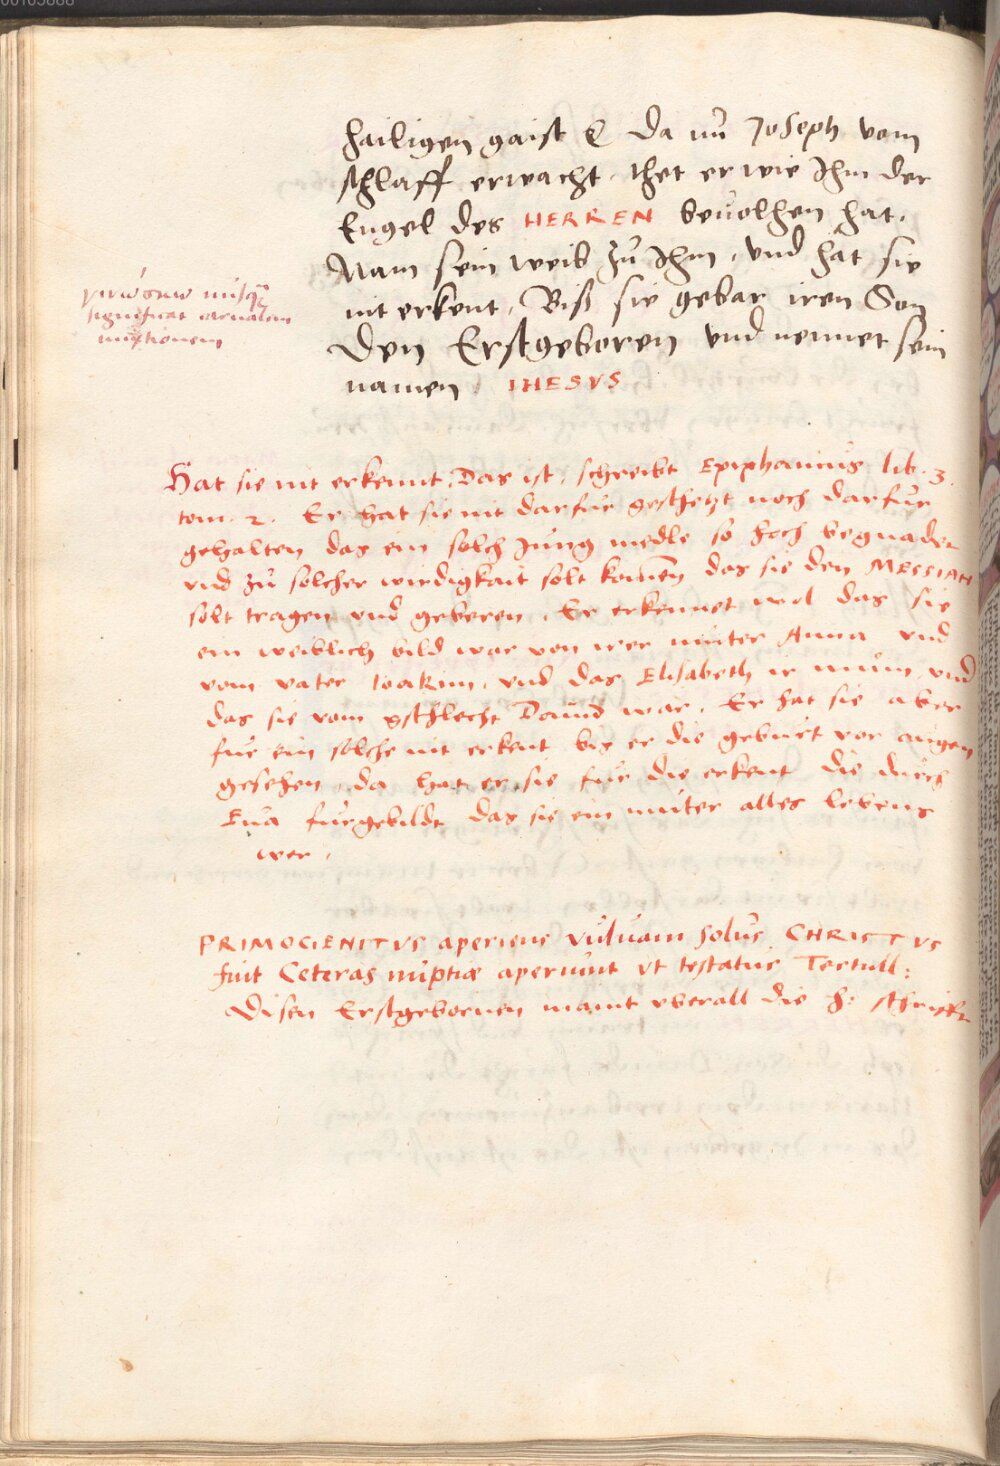 00105888
hailigen gaist & Da nu Joseph vom
schlaff erwacht, thet er wie Ihm der
Engel des HERREN beuolhen hat.
Nam sein weib zu Ihm, vnd hat sie
nit erkent, Biß sie gebar iren Son
Den Erstgeboren vnd nennet sein
namen, IHESVS
γινώσκω
significat carnalem
mixtionem
Hat sie nit erkennt, Das ist, schreibt Epiphanius lib. 3.
tom. 2. Er hat sie nit darfur geschetzt noch darfur
gehalten das ein solch Jung medle so hoch begnadet
vnd zu solcher wirdigkait solt komen das sie den MESSIAH
solt tragen vnd geberen, Er erkennet wol das sie
ein weiblich bild war von irer muter Anna vnd
vom vater Ioakim, vnd das Elisabeth ir mum vnd
das sie vom gschlecht Dauid war. Er hat sie aber
fur ein solche nit erkent bis er die geburt vor augen
gesehen, da hat er sie fur die erkent die durch
Eua furgebildt das sie ein muter alles lebens
wer,
PRIMOGENITVS aperiens vuluam solus CHRISTVS
fuit Ceteras nuptiæ aperiunt vt testatur Tertull:
Disen Erstgebornen maint vberall die h: schrifft